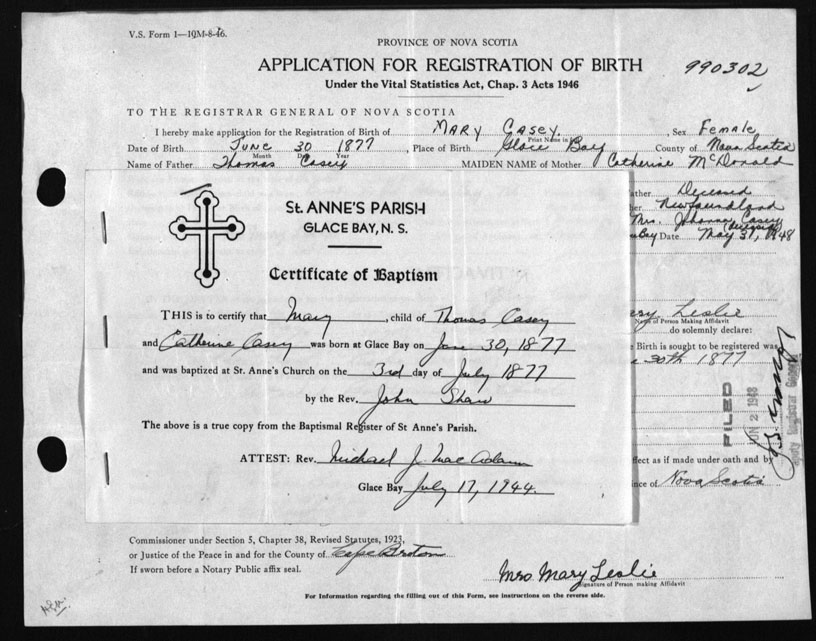 V.S. Form 1—10M-8-46.
PROVINCE OF NOVA SCOTIA
APPLICATION FOR REGISTRATION OF BIRTH
990302
Under the Vital Statistics Act, Chap. 3 Acts 1946
TO THE REGISTRAR GENERAL OF NOVA SCOTIA
I hereby make application for the Registration of Birth of MARY CASEY, Sex Female
Print Name in
Date of Birth June 30 1877, Place of Birth Glace Bay County of Nova Scotia
Month Day Year
Name of Father Thomas Casey MAIDEN NAME of Mother Catherine McDonald
ather Deceased
her Newfoundland
Mrs. Johanna Casey
Bay Date May 31, 1948
St. ANNE'S PARISH
GLACE BAY, N. S.
Certificate of Baptism
THIS is to certify that Mary, child of Thomas Casey
and Catherine Casey was born at Glace Bay on June 30, 1877
and was baptized at St. Anne's Church on the 3rd day of July 1877
by the Rev. John Shaw
The above is a true copy from the Baptismal Register of St Anne's Parish.
ATTEST: Rev. Michael J. Mac Adam
Glace Bay July 17, 1944.
ary Leslie
Name of Person Making Affidavit
do solemnly declare:
Birth is sought to be registered was
30th 1877
FILED
JUN 2 1948
Deputy Registrar General
ffect as if made under oath and by
ince of Nova Scotia
Commissioner under Section 5, Chapter 38, Revised Statutes, 1923,
or Justice of the Peace in and for the County of Cape Breton
If sworn before a Notary Public affix seal.
Mrs. Mary Leslie
Signature of Person making Affidavit
For Information regarding the filling out of this Form, see instructions on the reverse side.